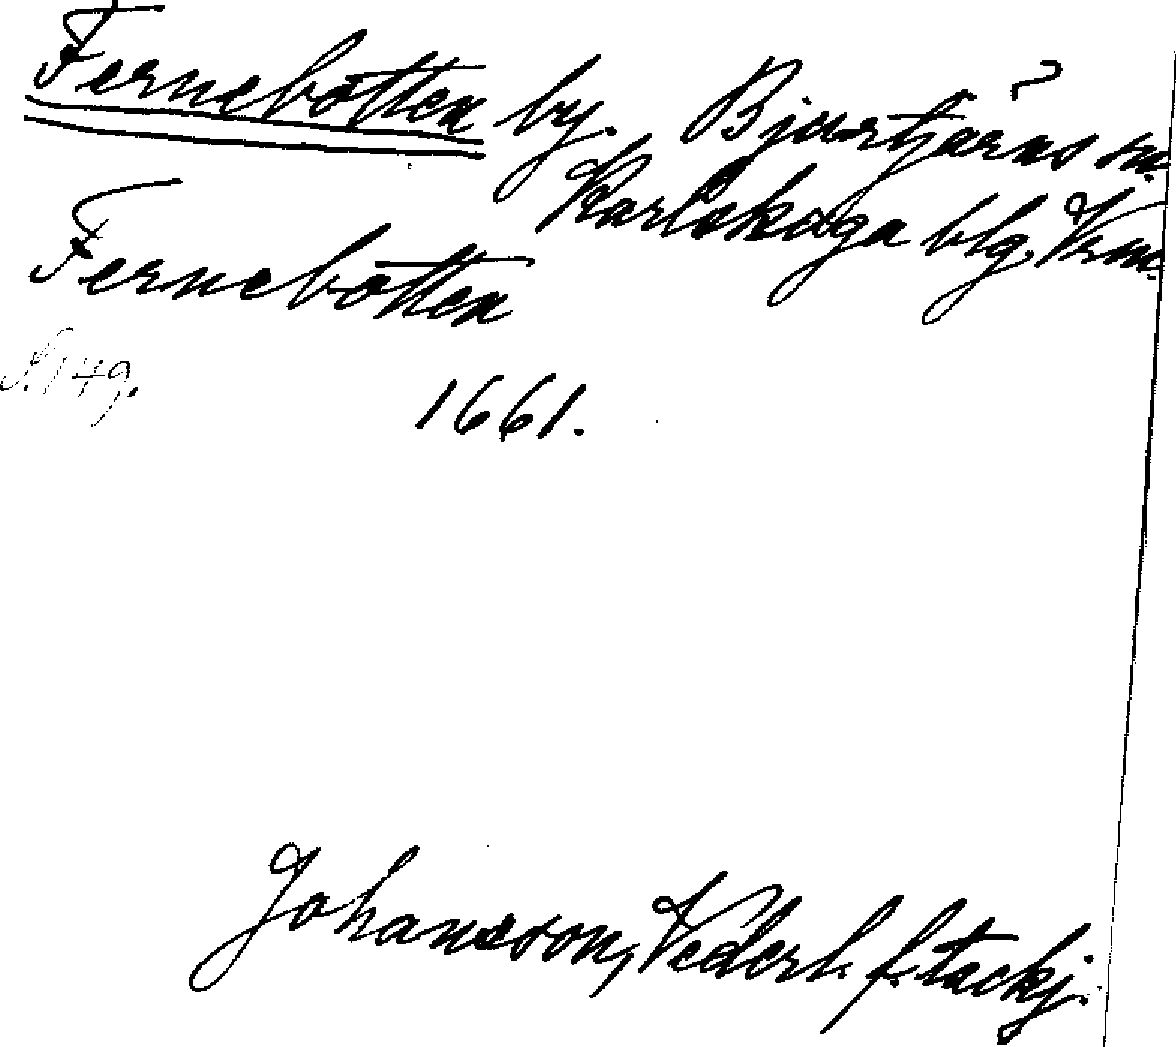 Fernebotten by. Bjurtjärns sn. ?
Karlskoga blg. Vrm.
Fernebotten
N. 149.
1661.
Johansson, Nederl. f. tackj.